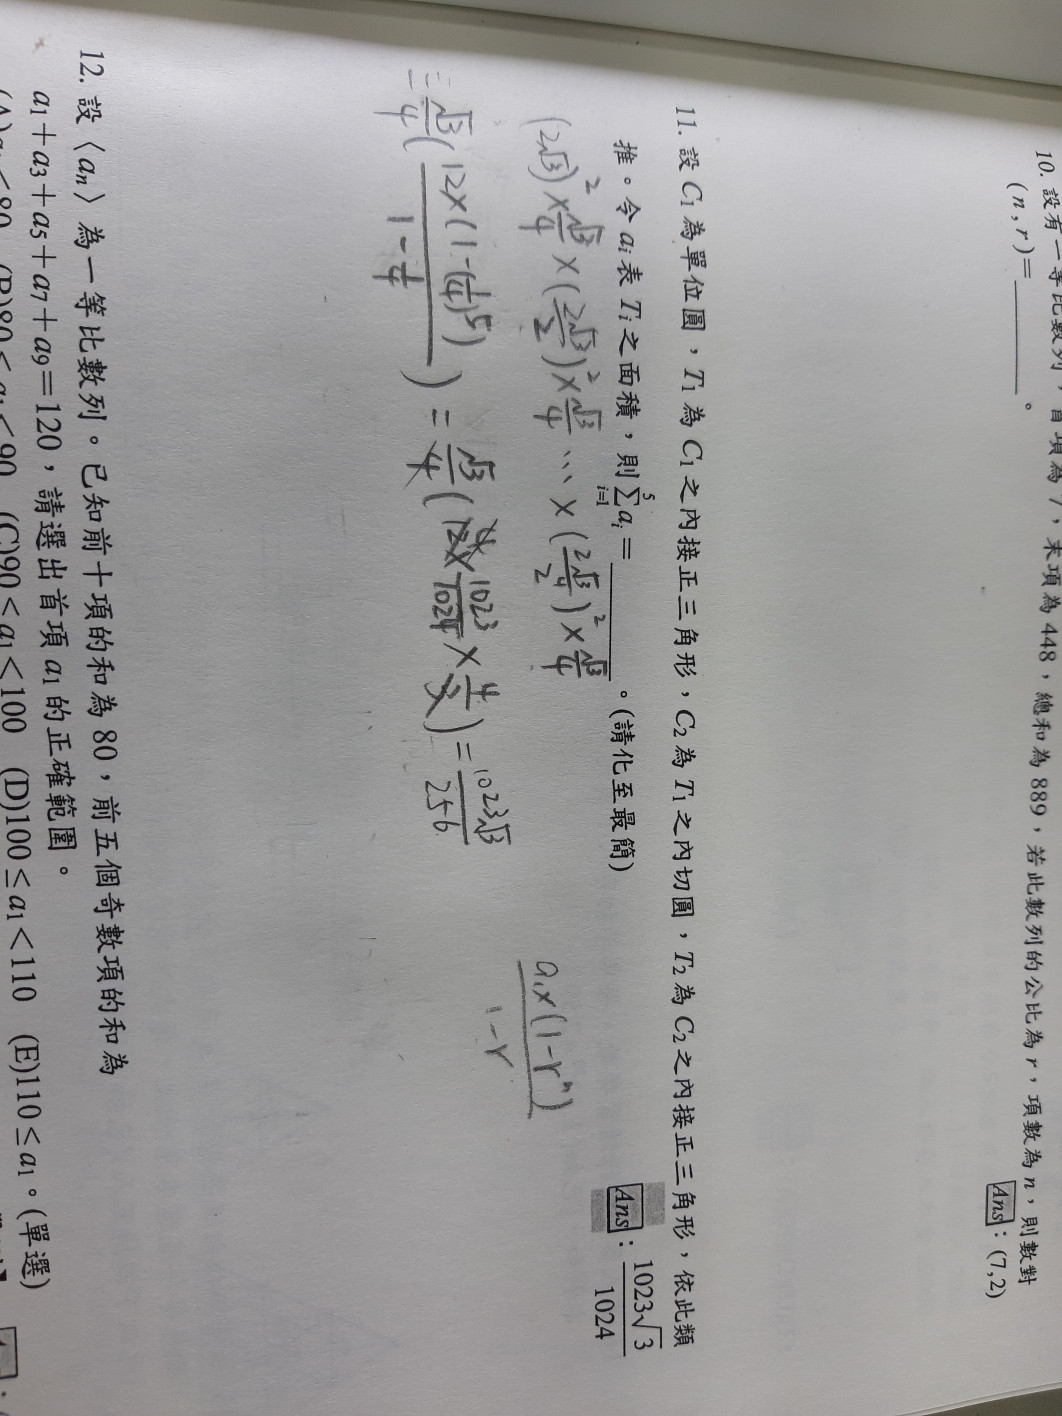 10. 設有一等比數列,首項為7,末項為448,總和為889,若此數列的公比為r,項數為n,則數對
(n,r)=________。
Ans:(7,2)
11. 設C₁為單位圓,T₁為C₁之內接正三角形,C₂為T₁之內切圓,T₂為C₂之內接正三角形,依此類
推。令aᵢ表Tᵢ之面積,則∑_{i=1}^{5} aᵢ=________。(請化至最簡)
Ans:1023√3/1024
(2√3)²×√3/4×(2√3/2)²×√3/4…×(2√3/2⁴)²×√3/4
a₁×(1-rⁿ)/1-r
=√3/4(12×(1-(1/4)⁵)/1-1/4)=√3/4(12×1023/1024×4/3)=1023√3/256
12. 設〈aₙ〉為一等比數列。已知前十項的和為80,前五個奇數項的和為
a₁+a₃+a₅+a₇+a₉=120,請選出首項a₁的正確範圍。
(A)a₁<80 (B)80≤a₁<90 (C)90≤a₁<100 (D)100≤a₁<110 (E)110≤a₁。(單選)